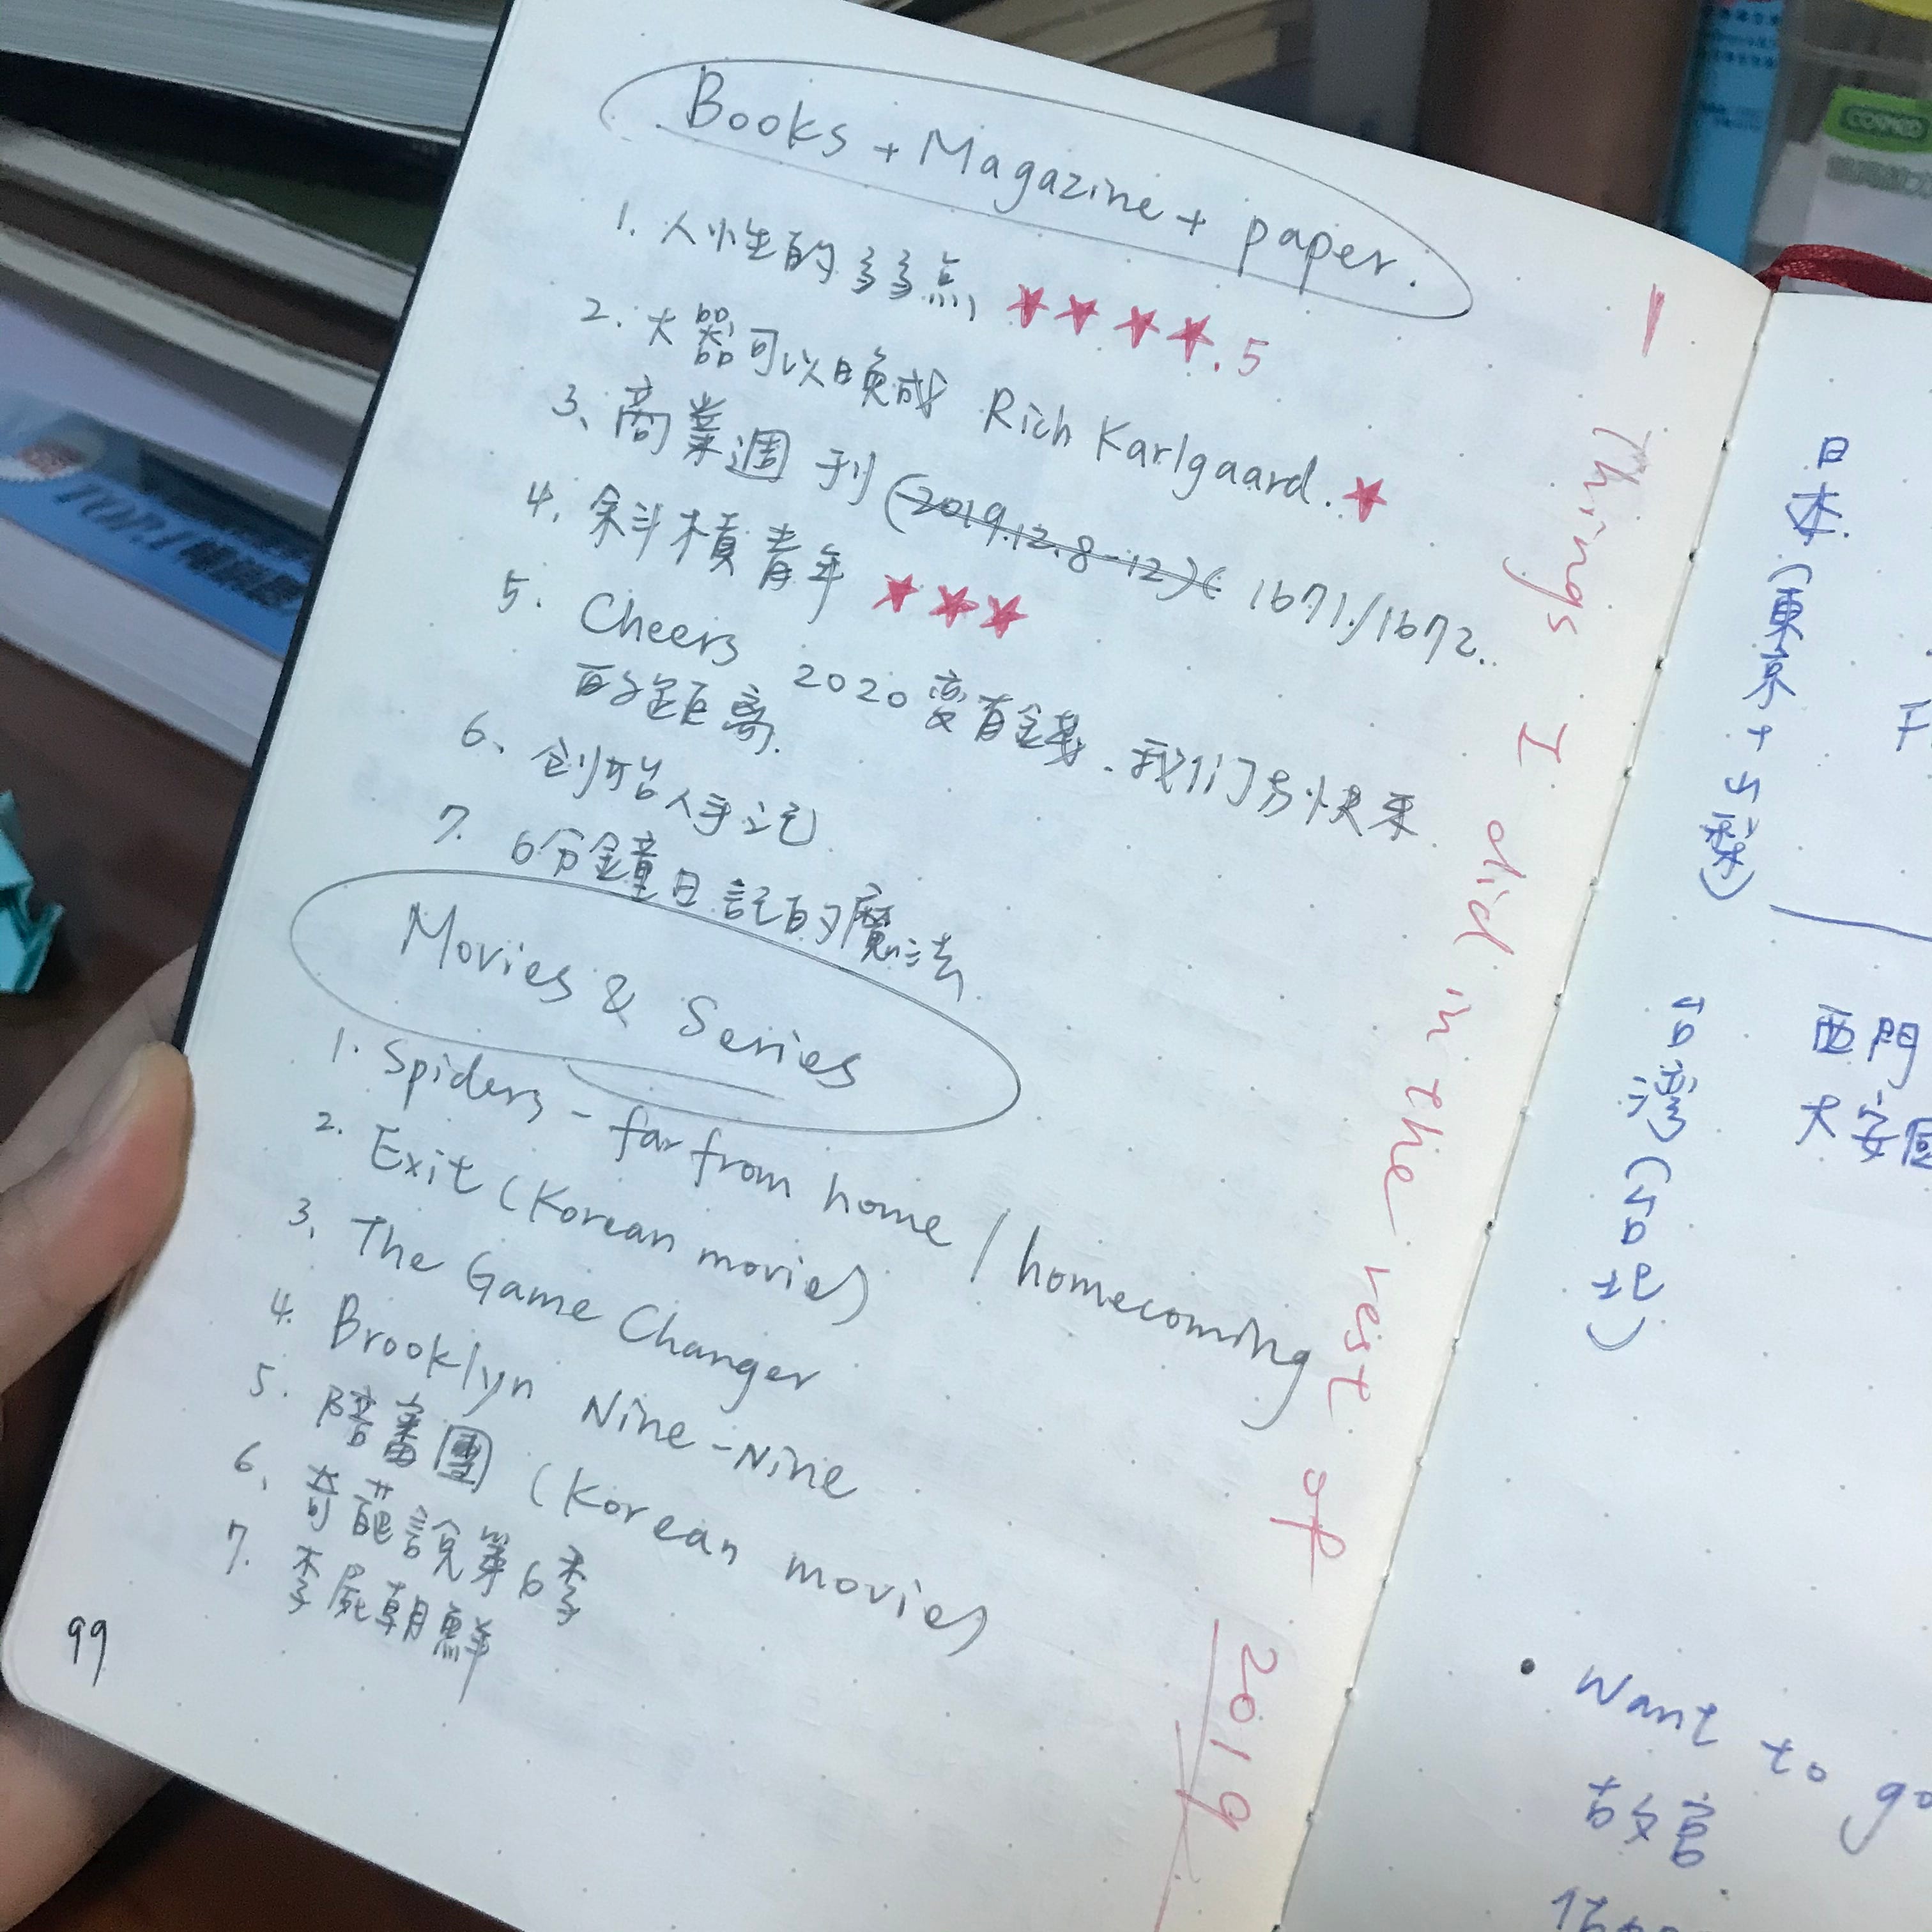 Books + Magazine + paper.
1. 人性的弱点 ★★★★.5
2. 大器可以晚成 Rich Karlgaard. ★
3、商業週刊 (2019.12.8-12) 1671./1672.
4. 斜槓青年 ★★★
5. Cheers 2020 變有錢、我们另快来
的距离.
6、创始人手记
7. 6分鐘日記的魔法
Movies & Series
1. Spiders - far from home / homecoming
2. Exit (Korean movie)
3、The Game Changer
4. Brooklyn Nine-Nine
5. 陪審團 (Korean movie)
6、奇葩說第6季
7. 李屍朝鮮
99
Things I did in the rest of 2019
日本 (東京+山梨)
台灣 (台北)
西門
大安區
• Want to go
故宮
TOP.1